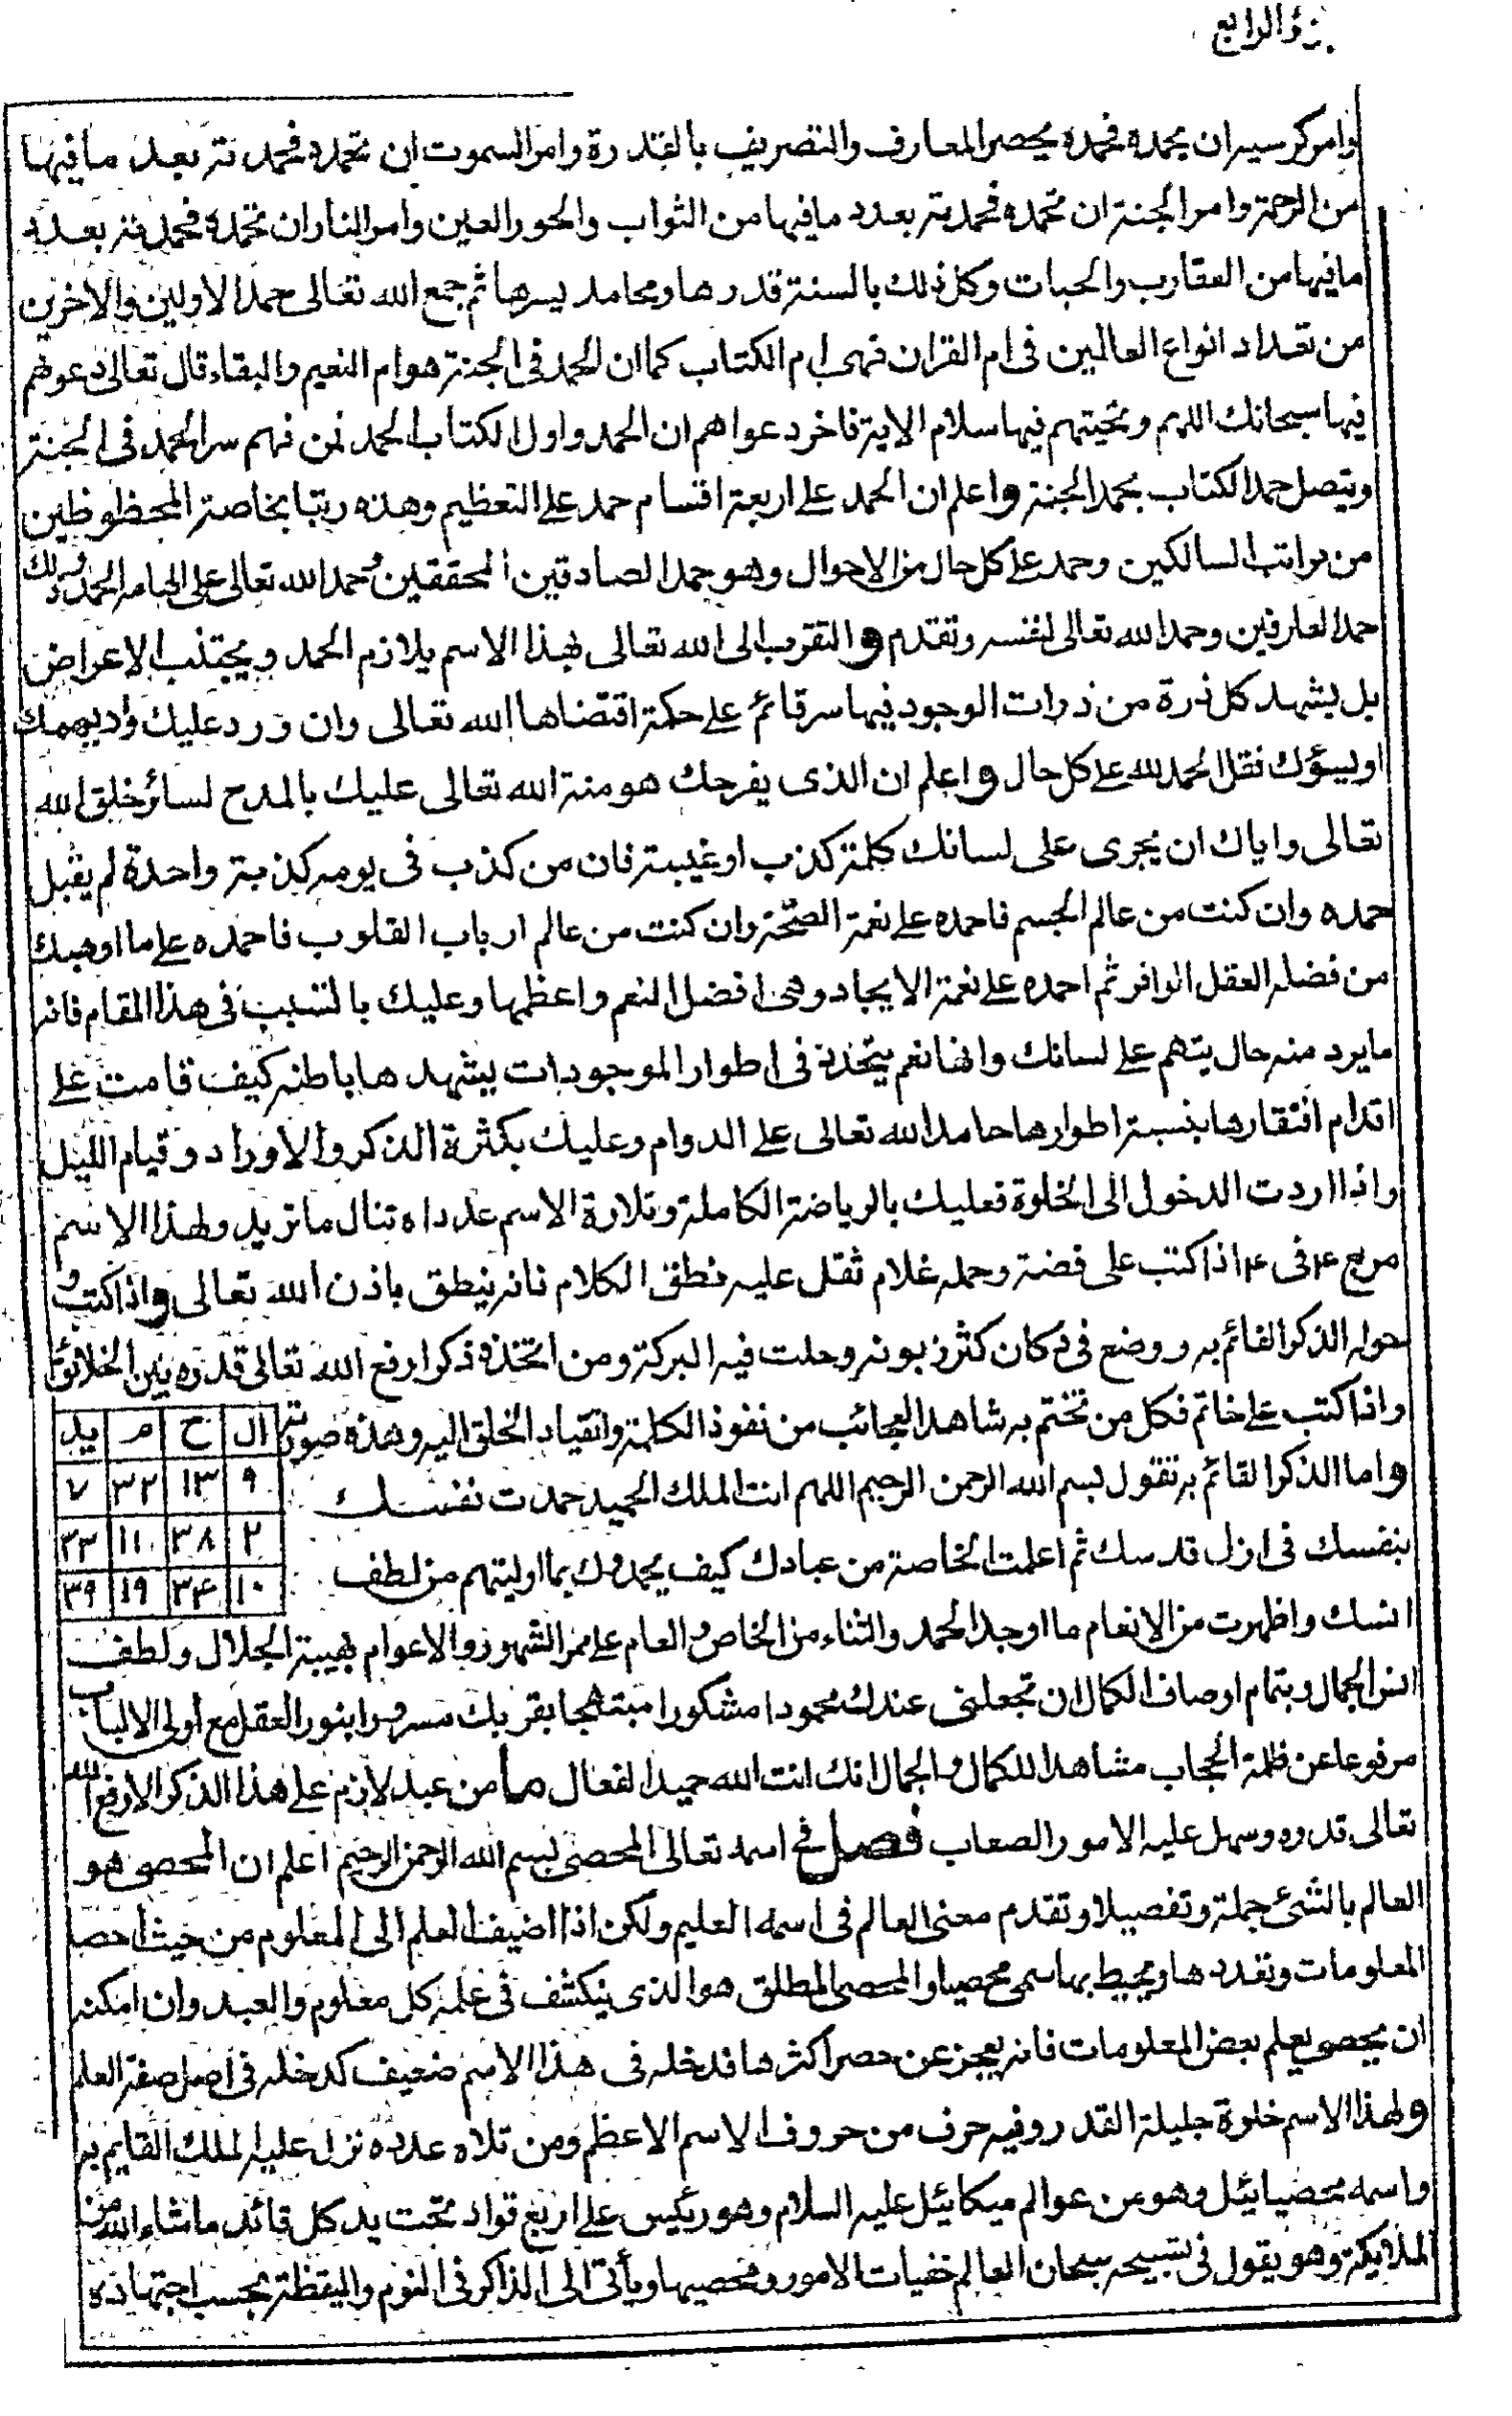 الرابع
وامر كرسيه ان يحمده فحمده يحصر المعارف والتصريف بالقدرة وامر السموت ان تحمده فحمدته بعدد مافيها
من الرحمة وامر الجنة ان تحمده فحمدته بعدد مافيها من الثواب والحور العين وامر النار ان تحمده فحمدته بعدد
مافيها من العقارب والحيات وكل ذلك بالسنة قدرها ومحامد يسرها ثم جمع الله تعالى حمد الاولين والاخرين
من تعداد انواع العالمين فى ام القران فهى ام الكتاب كما ان الحمد فى الجنة هو ام النعيم والبقاء قال تعالى دعوهم
فيها سبحانك اللهم وتحيتهم فيها سلام الاية فاخر دعواهم ان الحمد واول الكتاب الحمد فمن فهم سر الحمد فى الجنة
ويتصل حمد الكتاب بحمد الجنة واعلم ان الحمد على اربعة اقسام حمد على التعظيم وهذه رتبا بخاصة المحظوظين
من مراتب السالكين وحمد على كل حال من الاحوال وهو حمد الصادقين المحققين وحمد الله تعالى على الهامه الحمد وذلك
حمد العارفين وحمد الله تعالى لنفسه وتقدم والتقرب الى الله تعالى بهذا الاسم يلازم الحمد ويجتنب الاعراض
بل يشهد كل ذرة من ذرات الوجود فيها سر قائم على حكمة اقتضاها الله تعالى وان ورد عليك واد يهمك
او يسؤك نقل الحمد لله على كل حال واعلم ان الذى يفرحك هو منة الله تعالى عليك بالمدح لسائر خلق الله
تعالى واياك ان يجرى على لسانك كلمة كذب او غيبة فان من كذب فى يومه كذبة واحدة لم يقبل
حمده وان كنت من عالم الجسم فاحمده على نعمة الصحة وان كنت من عالم ارباب القلوب فاحمده على ما اوهبك
من فضله العقل الوافر ثم احمده على نعمة الايجاد وهى افضل النعم واعظمها وعليك بالتسبب فى هذا المقام فانه
مايرد منه حال يتهم على لسانك وانها نعم يتخذه فى اطوار الموجودات يشهدها باطنه كيف قامت على
اقدام افتقارها بنسبة اطوارها حامدا لله تعالى على الدوام وعليك بكثرة الذكر والاوراد وقيام الليل
واذا اردت الدخول الى الخلوة فعليك بالرياضة الكاملة وتلاوة الاسم عدداه تنال ماتريد ولهذا الاسم
مربع ۴ فى ۴ اذا كتب على فضة وحمله غلام ثقل عليه نطق الكلام فانه ينطق باذن الله تعالى واذا كتب و
حوله الذكر القائم به ووضع فى دكان كثر زبونه وحلت فيه البركة ومن اتخذه ذكرا رفع الله تعالى قدره بين الخلائق
واذا كتب على خاتم فكل من تختم به شاهد العجائب من نفوذ الكلمة وانقياد الخلق اليه وهذه صورته
ال ح م يد
۹ ۱۳ ۳۲ ۷
۲ ۳۸ ۱۱ ۳۳
۱۰ ۳۴ ۱۹ ۳۹
واما الذكر القائم به تقول بسم الله الرحمن الرحيم اللهم انت الملك الحميد حمدت نفسك
بنفسك فى ازل قدسك ثم اعلمت الخاصة من عبادك كيف يحمدوك بما اوليتهم من لطف
انسك واظهرت من الانعام ما اوجد الحمد والثناء من الخاص والعام على ممر الشهور والاعوام بهيبة الجلال ولطف
انس الجمال وبتمام اوصاف الكمال ان تجعلنى عندك محمودا مشكورا مبتهجا بقربك مسرورا بنور العقل مع اولى الالباب
مرفوعا عن ظلمة الحجاب مشاهدا للكمال والجمال انك انت الله حميد الفعال ما من عبد لازم على هذا الذكر الا رفع الله
تعالى قدره وسهل عليه الامور الصعاب فصل فى اسمه تعالى المحصى بسم الله الرحمن الرحيم اعلم ان المحصى هو
العالم بالشىء جملة وتفصيلا وتقدم معنى العالم فى اسمه العليم ولكن اذا اضيف العلم الى المعلوم من حيث احصا
المعلومات وتعددها ويحيط بها سمى محصيا والمحصى المطلق هو الذى ينكشف فى علمه كل معلوم والعبد وان امكنه
ان يحصى بعلم بعض المعلومات فانه يعجز عن حصر اكثرها فدخله فى هذا الاسم ضعيف كدخله فى اصل صفة العلم
ولهذا الاسم خلوة جليلة القدر وفيه حرف من حروف الاسم الاعظم ومن تلاه عدده نزل عليه الملك القايم به
واسمه محضيائيل وهو من عوالم ميكائيل عليه السلام وهو رئيس على اربع قواد تحت يد كل قائد ماشاء الله من
الملايكة وهو يقول فى تسبيحه سبحان العالم خفيات الامور ومحصيها ويأتى الى الذاكر فى النوم واليقظة بحسب اجتهاده